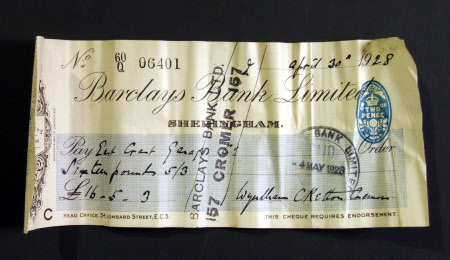 No 60/Q 06401 April 30th 1928
Barclays Bank Limited
SHERINGHAM.
TWO PENCE
Pay East Coast Garage Order
Sixteen pounds 5/3
£16-5-3
Wyndham C Ketton Cremer
BARCLAYS BANK LTD.
157 CROMER 157
BANK LIMITED
PAID
4 MAY 1928
C
HEAD OFFICE, 54, LOMBARD STREET, E.C.3.
THIS CHEQUE REQUIRES ENDORSEMENT.